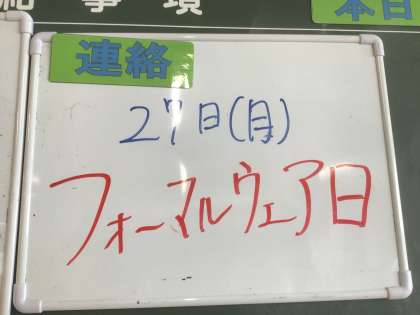 絡事項
本日
連絡
27日(月)
フォーマルウェア日